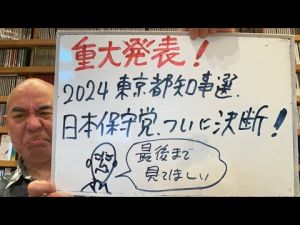 重大発表！
2024東京都知事選、
日本保守党、ついに決断！
最後まで
見てほしい